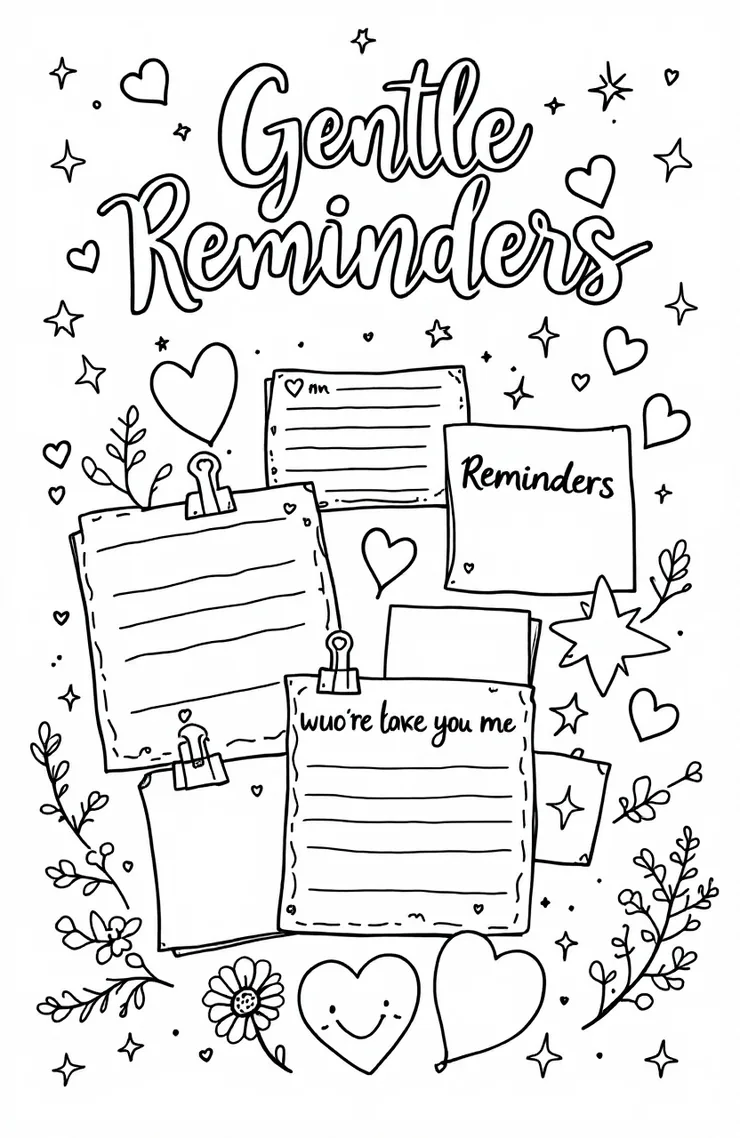 Gentle
Reminders
nn
Reminders
wuo're take you me